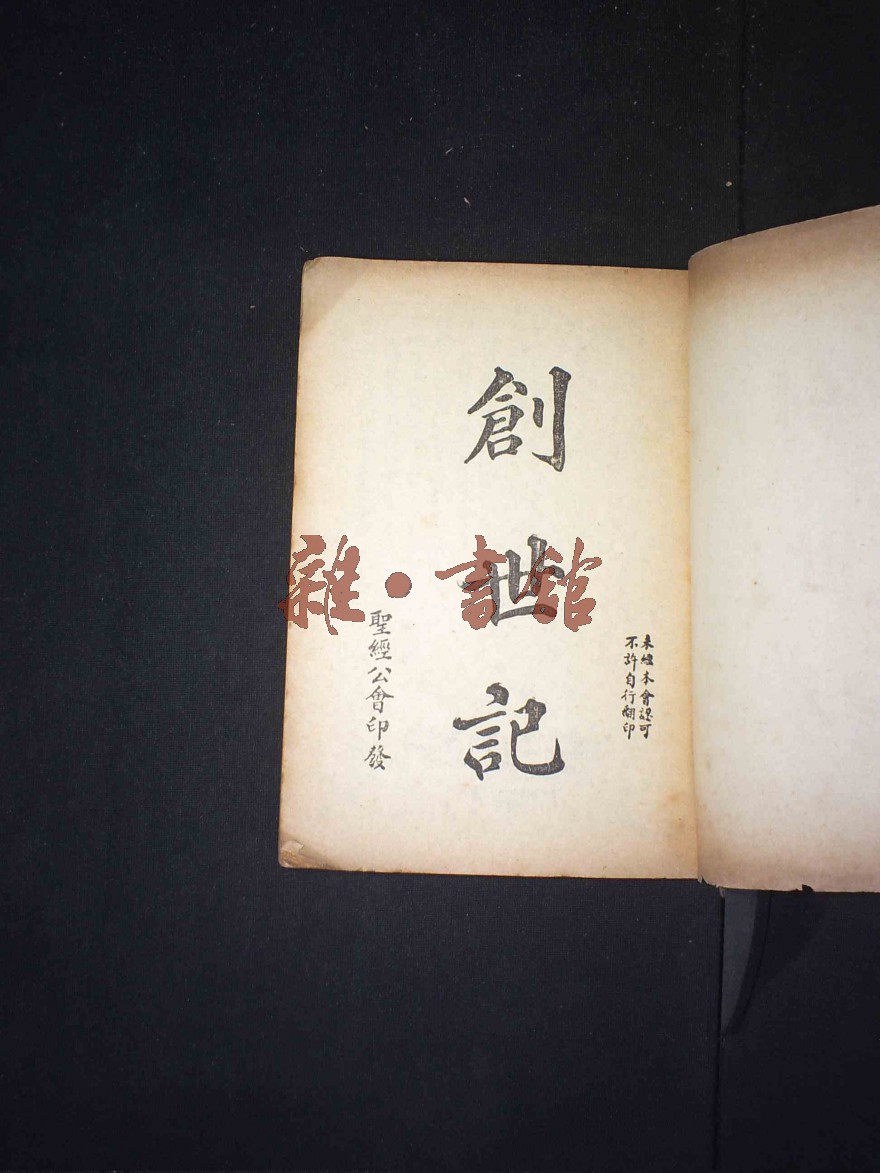 未經本會認可
不許自行翻印
創世記
聖經公會印發
雜·書館